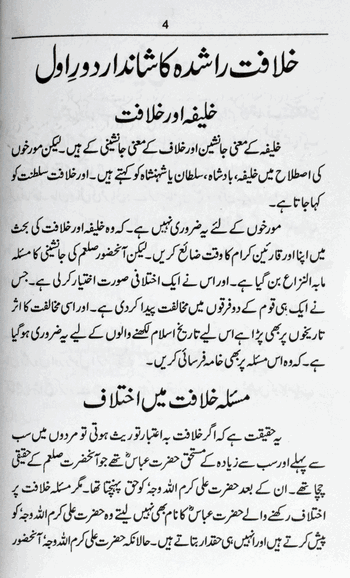 4
خلافت راشدہ کا شاندار دورِ اول
خلیفہ اور خلافت
خلیفہ کے معنی جانشین اور خلاف کے معنی جانشینی کے ہیں۔ لیکن مورخوں
کی اصطلاح میں خلیفہ، بادشاہ، سلطان یا شہنشاہ کو کہتے ہیں۔ اور خلافت سلطنت کو
کہا جاتا ہے۔
مورخوں کے لئے یہ ضروری نہیں ہے۔ کہ وہ خلیفہ اور خلافت کی بحث
میں اپنا اور قارئین کرام کا وقت ضائع کریں۔ لیکن آنحضور صلعم کی جانشینی کا مسئلہ
مابہ النزاع بن گیا ہے۔ اور اس نے ایک اختلافی صورت اختیار کر لی ہے۔ جس
نے ایک ہی قوم کے دو فرقوں میں مخالفت پیدا کر دی ہے۔ اور اسی مخالفت کا اثر
تاریخوں پر بھی پڑا ہے اس لیے تاریخ اسلام لکھنے والوں کے لیے یہ ضروری ہو گیا
ہے۔ کہ وہ اس مسئلہ پر بھی خامہ فرسائی کریں۔
مسئلہ خلافت میں اختلاف
یہ حقیقت ہے کہ اگر خلافت بہ اعتبار توریث ہوتی تو مردوں میں سب
سے پہلے اور سب سے زیادہ کے مستحق حضرت عباسؓ تھے جو آنحضرت صلعم کے حقیقی
چچا تھے۔ ان کے بعد حضرت علی کرم اللہ وجہٗ کو حق پہنچتا تھا۔ مگر مسئلہ خلافت پر
اختلاف رکھنے والے حضرت عباسؓ کا نام بھی نہیں لیتے وہ حضرت علی کرم اللہ وجہٗ کو
پیش کرتے ہیں اور انہیں ہی حقدار بتاتے ہیں۔ حالانکہ حضرت علی کرم اللہ وجہٗ آنحضور